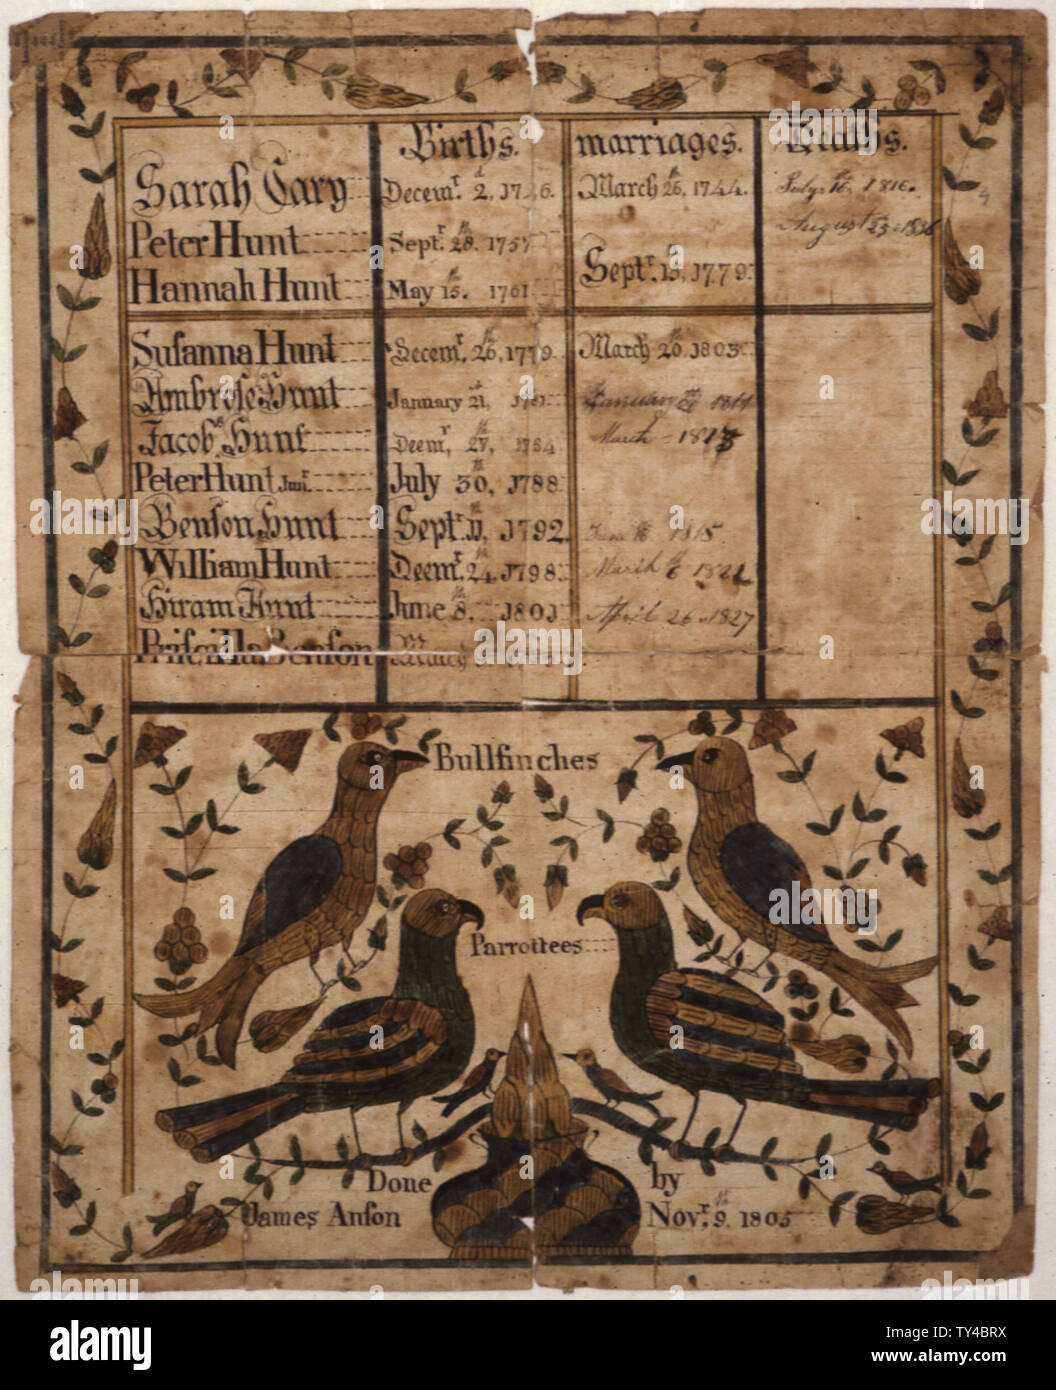 Births. marriages. Deaths.
Sarah Cary Decemr. 2d, 1746. March 26th, 1744. July 16th, 1816.
August 23. 1826
Peter Hunt Septr. 28th. 1757
Septr. 15, 1779.
Hannah Hunt May 15th. 1761
Susanna Hunt Decemr. 26th, 1779 March 20th, 1803
Ambrose Hunt January 21, 1781 January 1811
Jacob Hunt Deemr, 27, 1784 March - 1813
Peter Hunt Junr. July 30th, 1788
Benson Hunt Septr. 11th, 1792. 16 1815
William Hunt Deemr. 24th, 1798 March 6 1822
Hiram Hunt June 8th, 1801 April 26. 1827
Priscilla Benson
Bullfinches
Parrottees
Done by
James Anson Novr. 9th, 1805
alamy
Image ID: TY4BRX
www.alamy.com